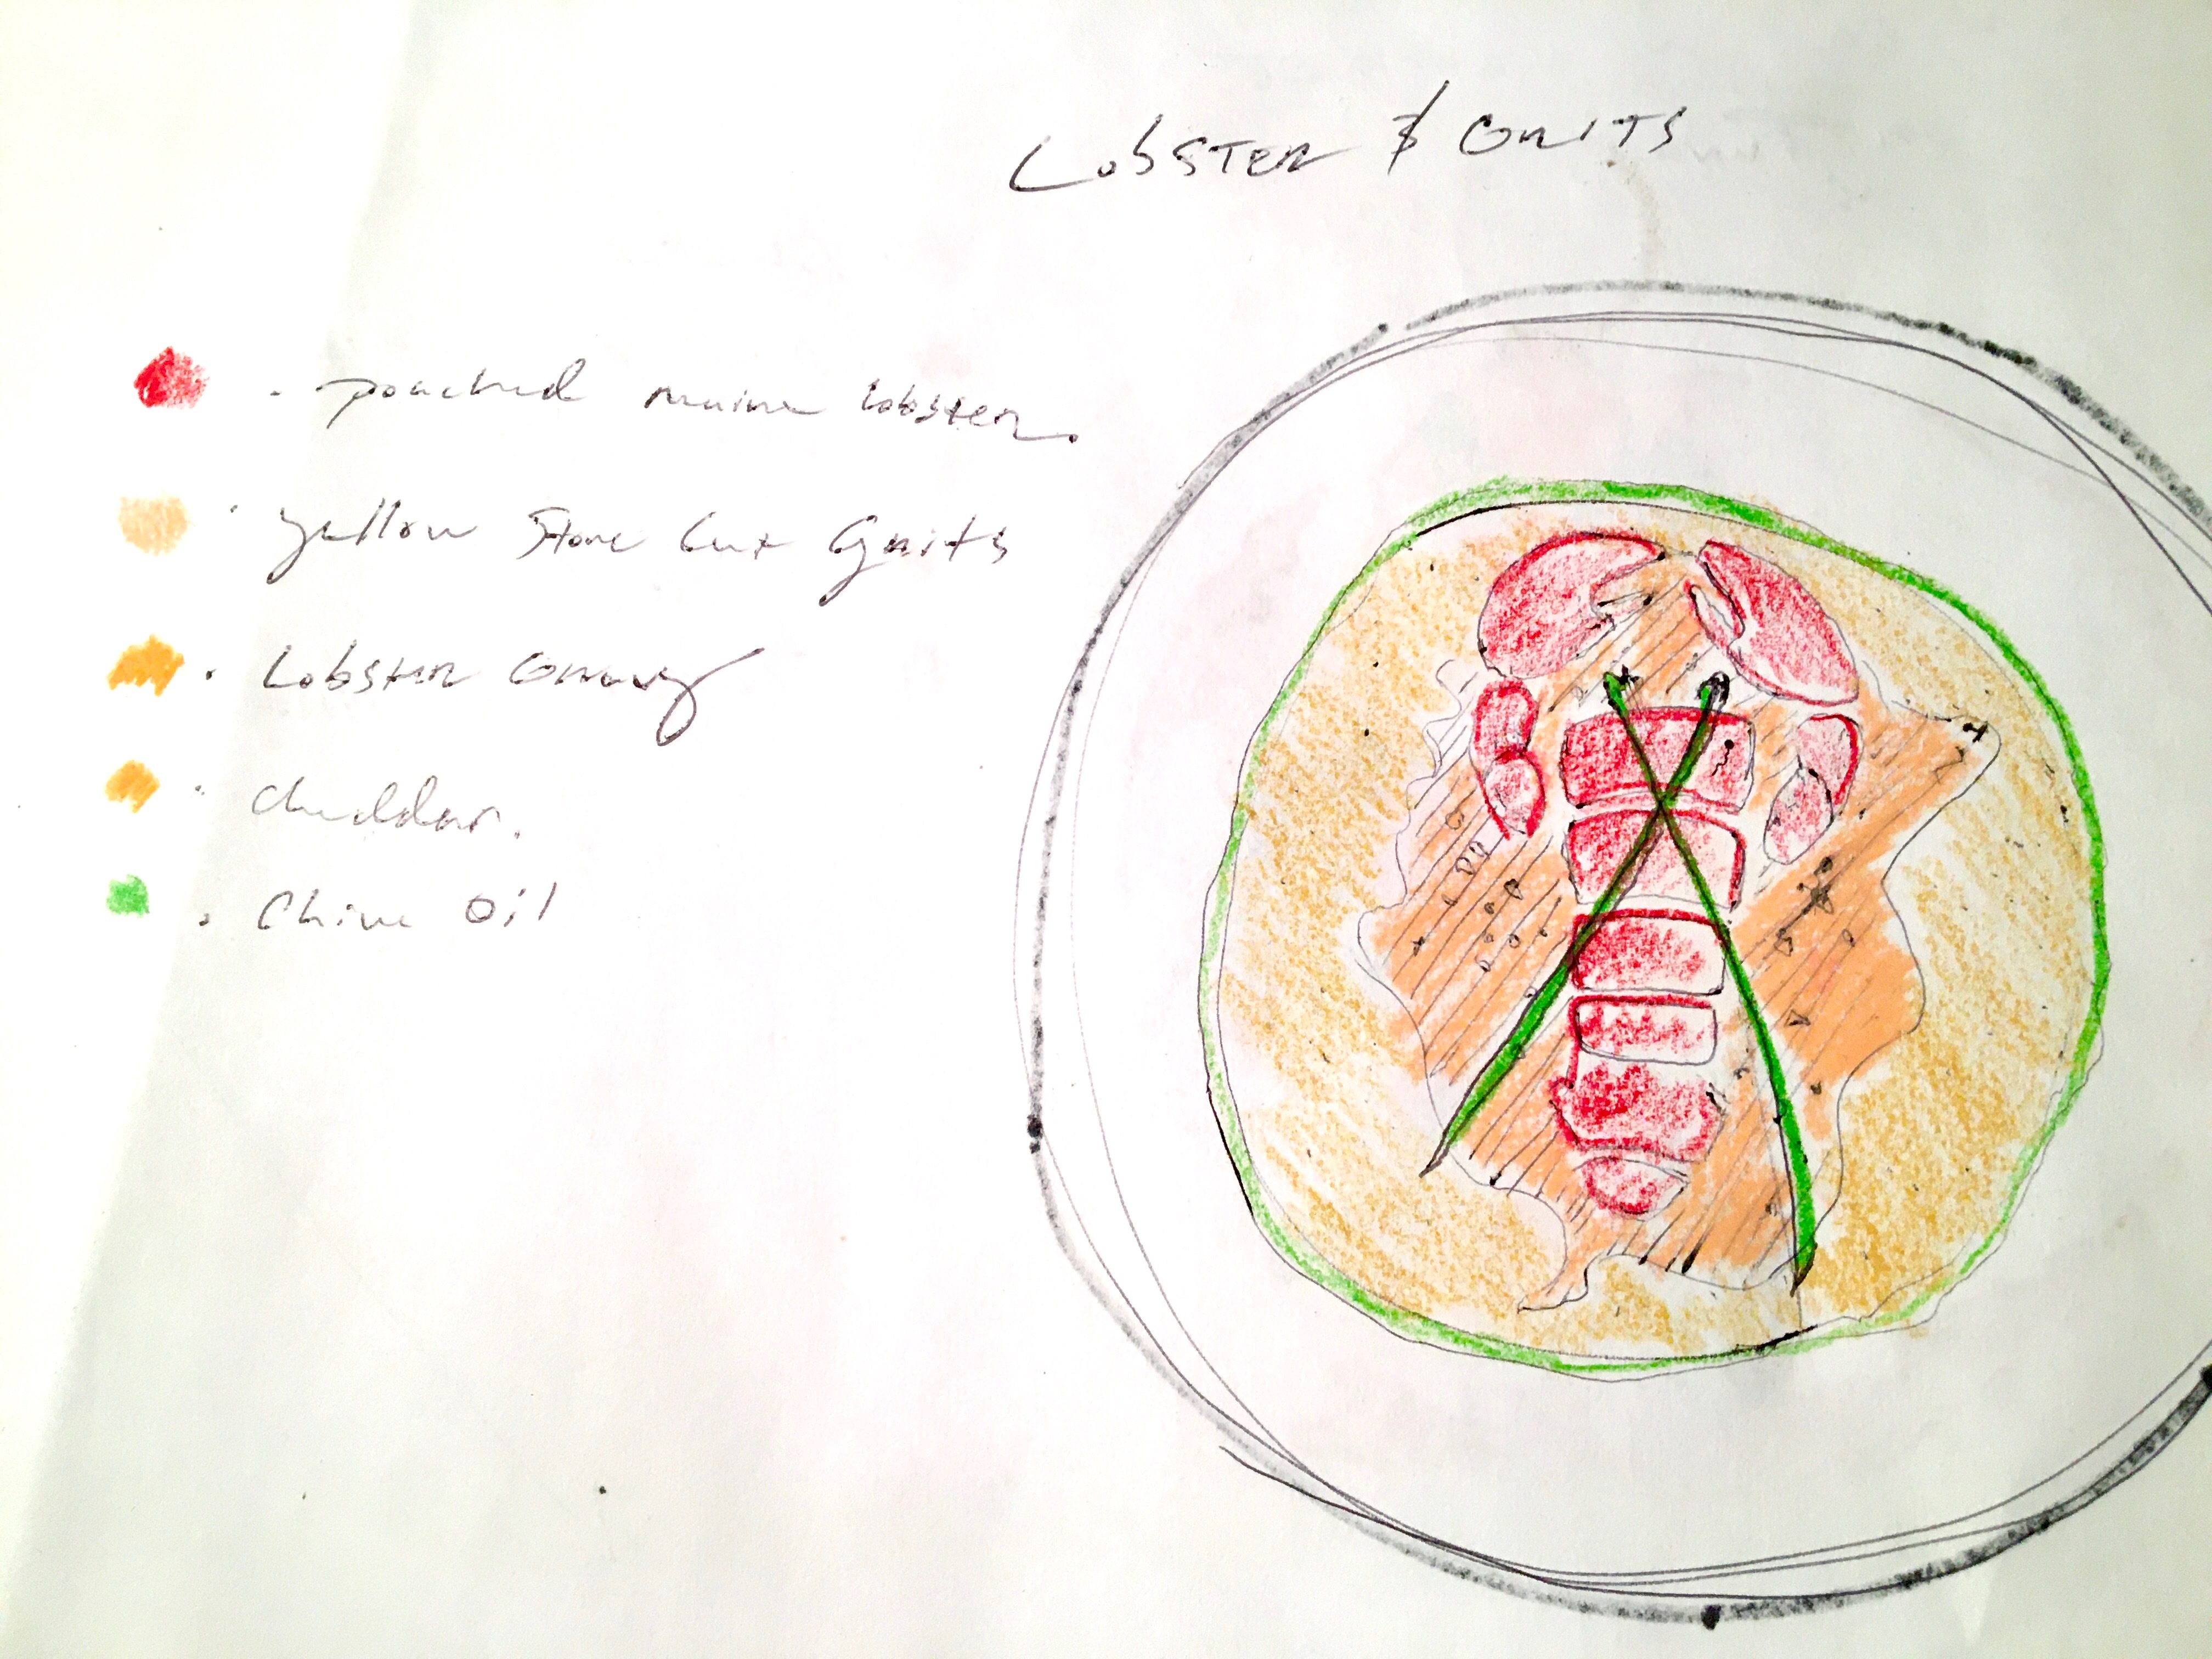 Lobster & Grits
. poached maine lobster.
. yellow Stone Cut Grits
. Lobster Gravy
. Cheddar.
. Chive Oil